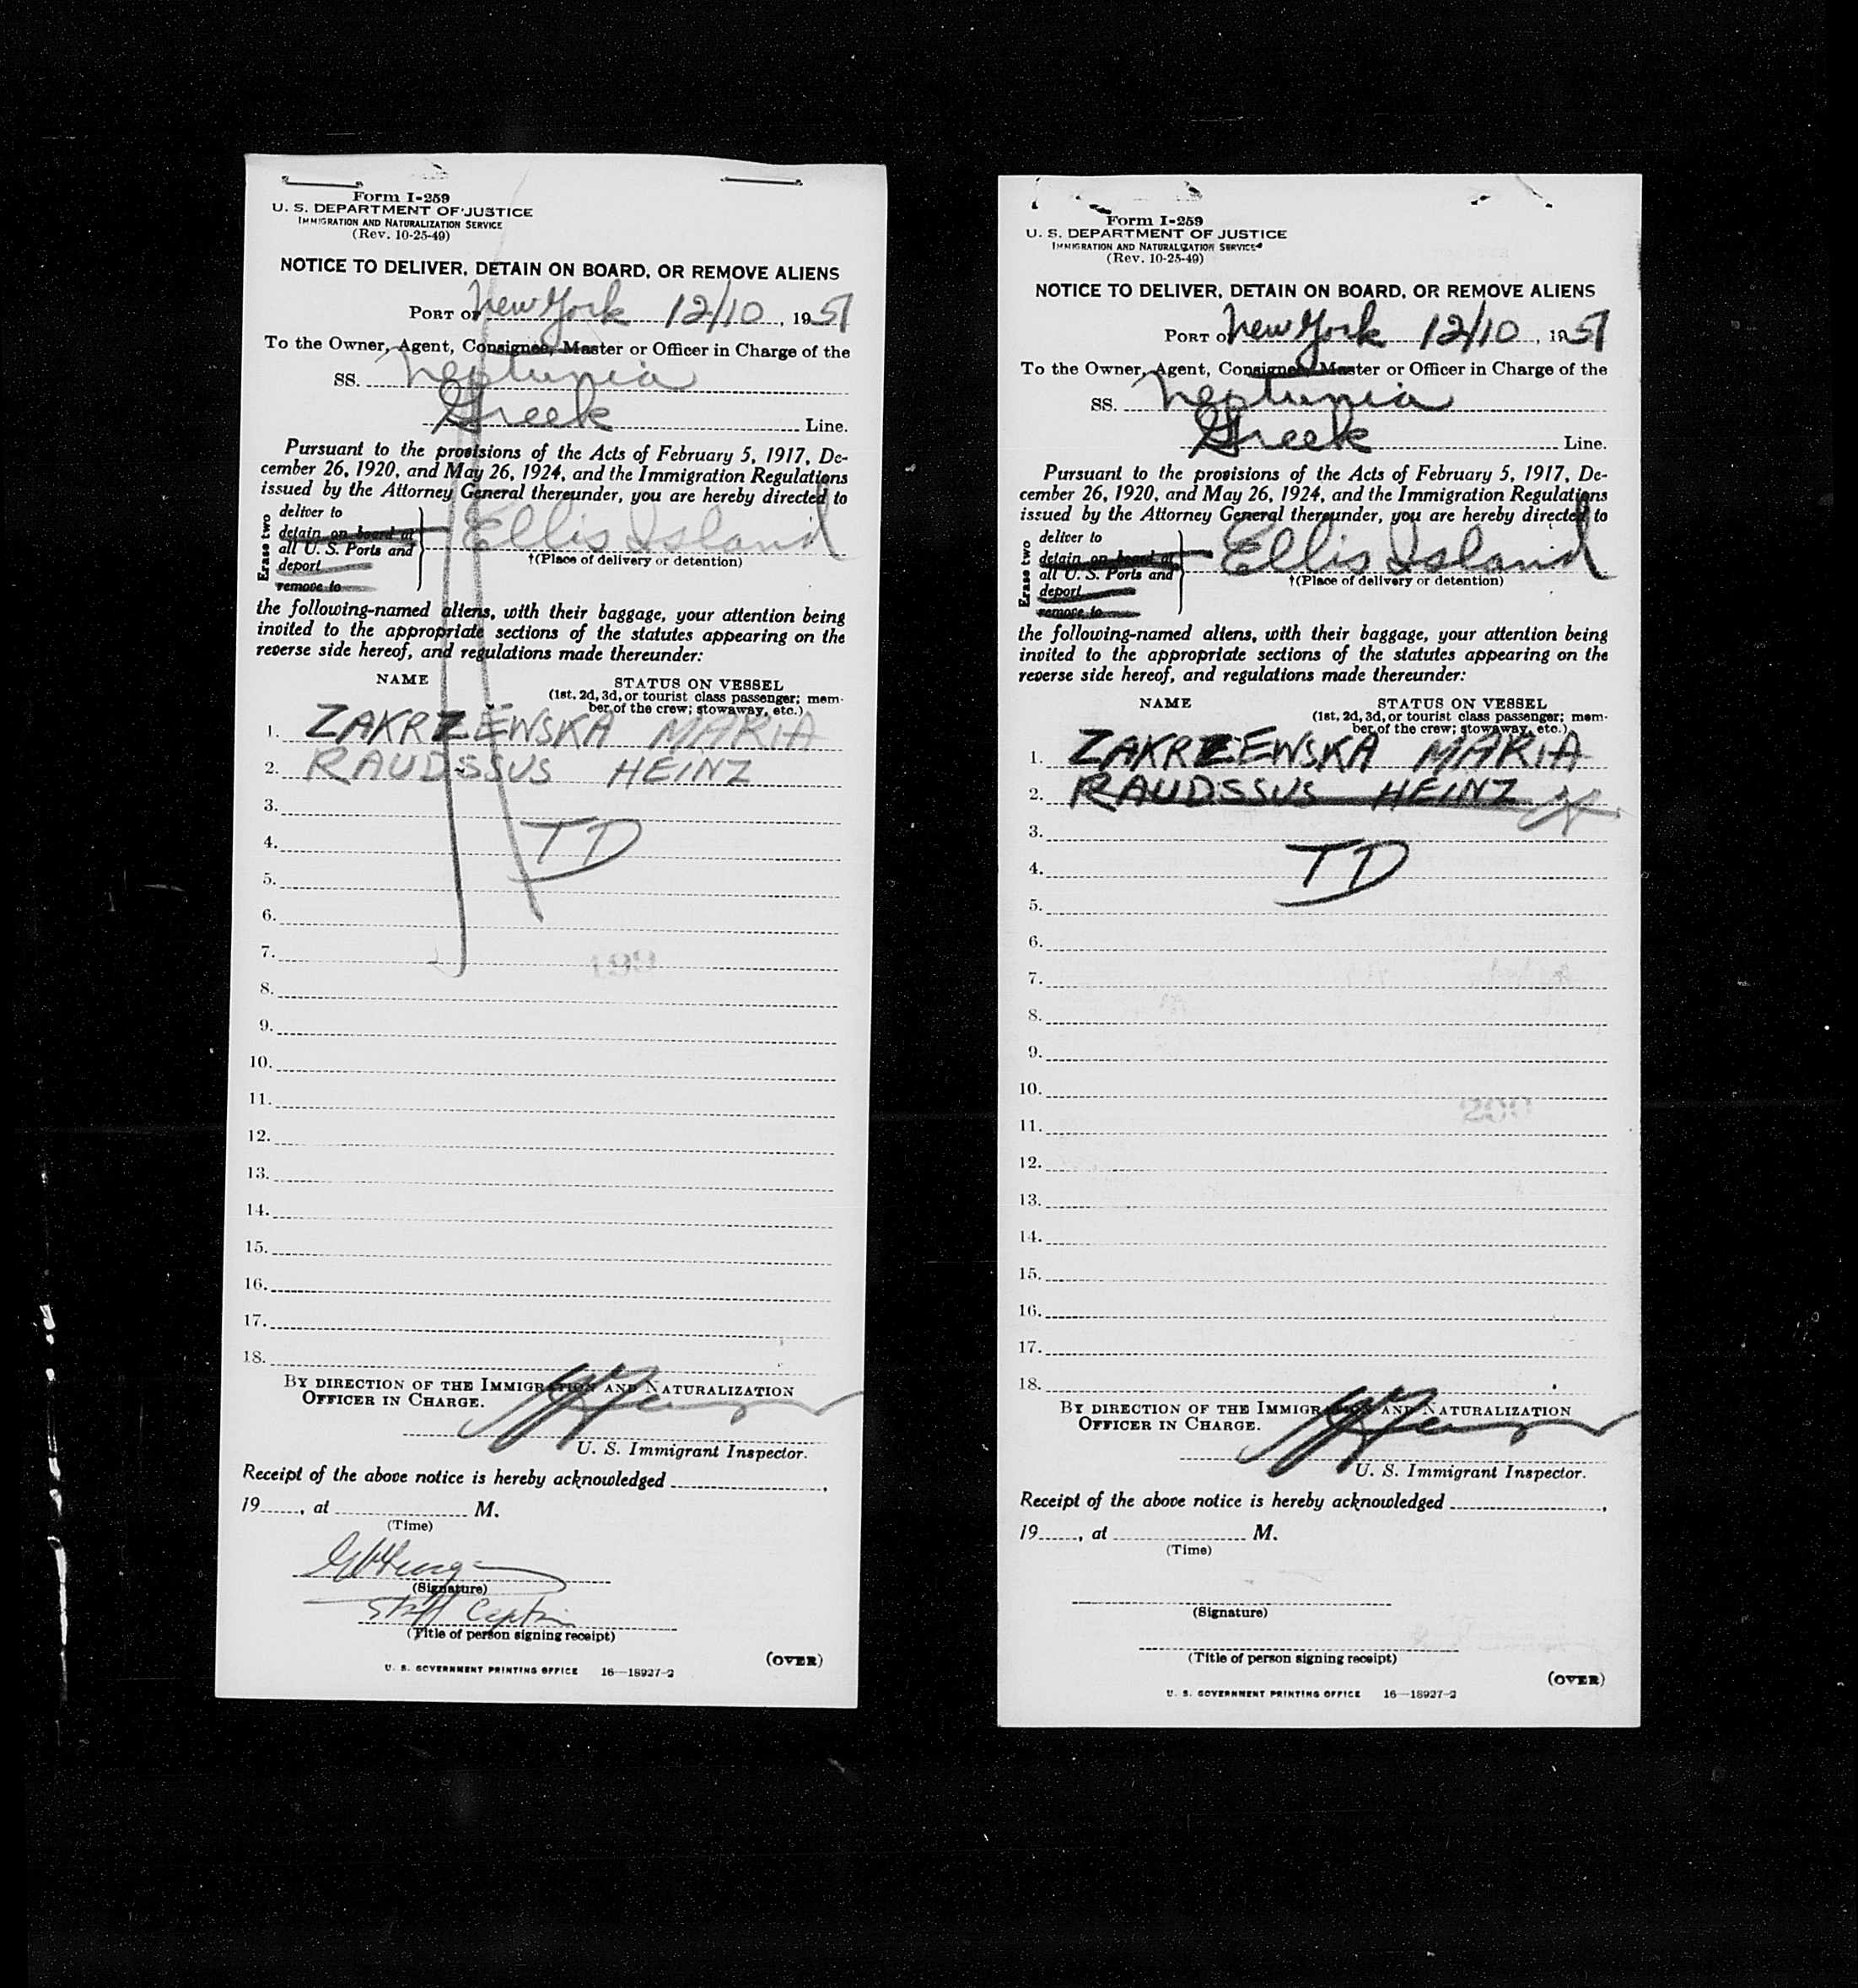 Form I-259
U. S. DEPARTMENT OF JUSTICE
IMMIGRATION AND NATURALIZATION SERVICE
(Rev. 10-25-49)
NOTICE TO DELIVER, DETAIN ON BOARD, OR REMOVE ALIENS
PORT OF New York 12/10, 1951
To the Owner, Agent, Consignee, Master or Officer in Charge of the
SS. Neptunia
Greek Line.
Pursuant to the provisions of the Acts of February 5, 1917, De-
cember 26, 1920, and May 26, 1924, and the Immigration Regulations
issued by the Attorney General thereunder, you are hereby directed to
Erase two
deliver to
detain on board at
all U. S. Ports and
deport
remove to
Ellis Island
†(Place of delivery or detention)
the following-named aliens, with their baggage, your attention being
invited to the appropriate sections of the statutes appearing on the
reverse side hereof, and regulations made thereunder:
NAME STATUS ON VESSEL
(1st, 2d, 3d, or tourist class passenger; mem-
ber of the crew; stowaway, etc.)
1. ZAKRZEWSKA MARIA
2. RAUDSSUS HEINZ
3.
4. TD
5.
6.
7. 199
8.
9.
10.
11.
12.
13.
14.
15.
16.
17.
18.
BY DIRECTION OF THE IMMIGRATION AND NATURALIZATION
OFFICER IN CHARGE.
U. S. Immigrant Inspector.
Receipt of the above notice is hereby acknowledged
19, at M.
(Time)
(Signature)
Staff Captain
(Title of person signing receipt)
(OVER)
U. S. GOVERNMENT PRINTING OFFICE 16—18927-2
Form I-259
U. S. DEPARTMENT OF JUSTICE
IMMIGRATION AND NATURALIZATION SERVICE
(Rev. 10-25-49)
NOTICE TO DELIVER, DETAIN ON BOARD, OR REMOVE ALIENS
PORT OF New York 12/10, 1951
To the Owner, Agent, Consignee, Master or Officer in Charge of the
SS. Neptunia
Greek Line.
Pursuant to the provisions of the Acts of February 5, 1917, De-
cember 26, 1920, and May 26, 1924, and the Immigration Regulations
issued by the Attorney General thereunder, you are hereby directed to
Erase two
deliver to
detain on board at
all U. S. Ports and
deport
remove to
Ellis Island
†(Place of delivery or detention)
the following-named aliens, with their baggage, your attention being
invited to the appropriate sections of the statutes appearing on the
reverse side hereof, and regulations made thereunder:
NAME STATUS ON VESSEL
(1st, 2d, 3d, or tourist class passenger; mem-
ber of the crew; stowaway, etc.)
1. ZAKRZEWSKA MARIA
2. RAUDSSUS HEINZ X
3.
4. TD
5.
6.
7.
8.
9.
10.
200
11.
12.
13.
14.
15.
16.
17.
18.
BY DIRECTION OF THE IMMIGRATION AND NATURALIZATION
OFFICER IN CHARGE.
U. S. Immigrant Inspector.
Receipt of the above notice is hereby acknowledged
19, at M.
(Time)
(Signature)
(Title of person signing receipt)
(OVER)
U. S. GOVERNMENT PRINTING OFFICE 16—18927-2